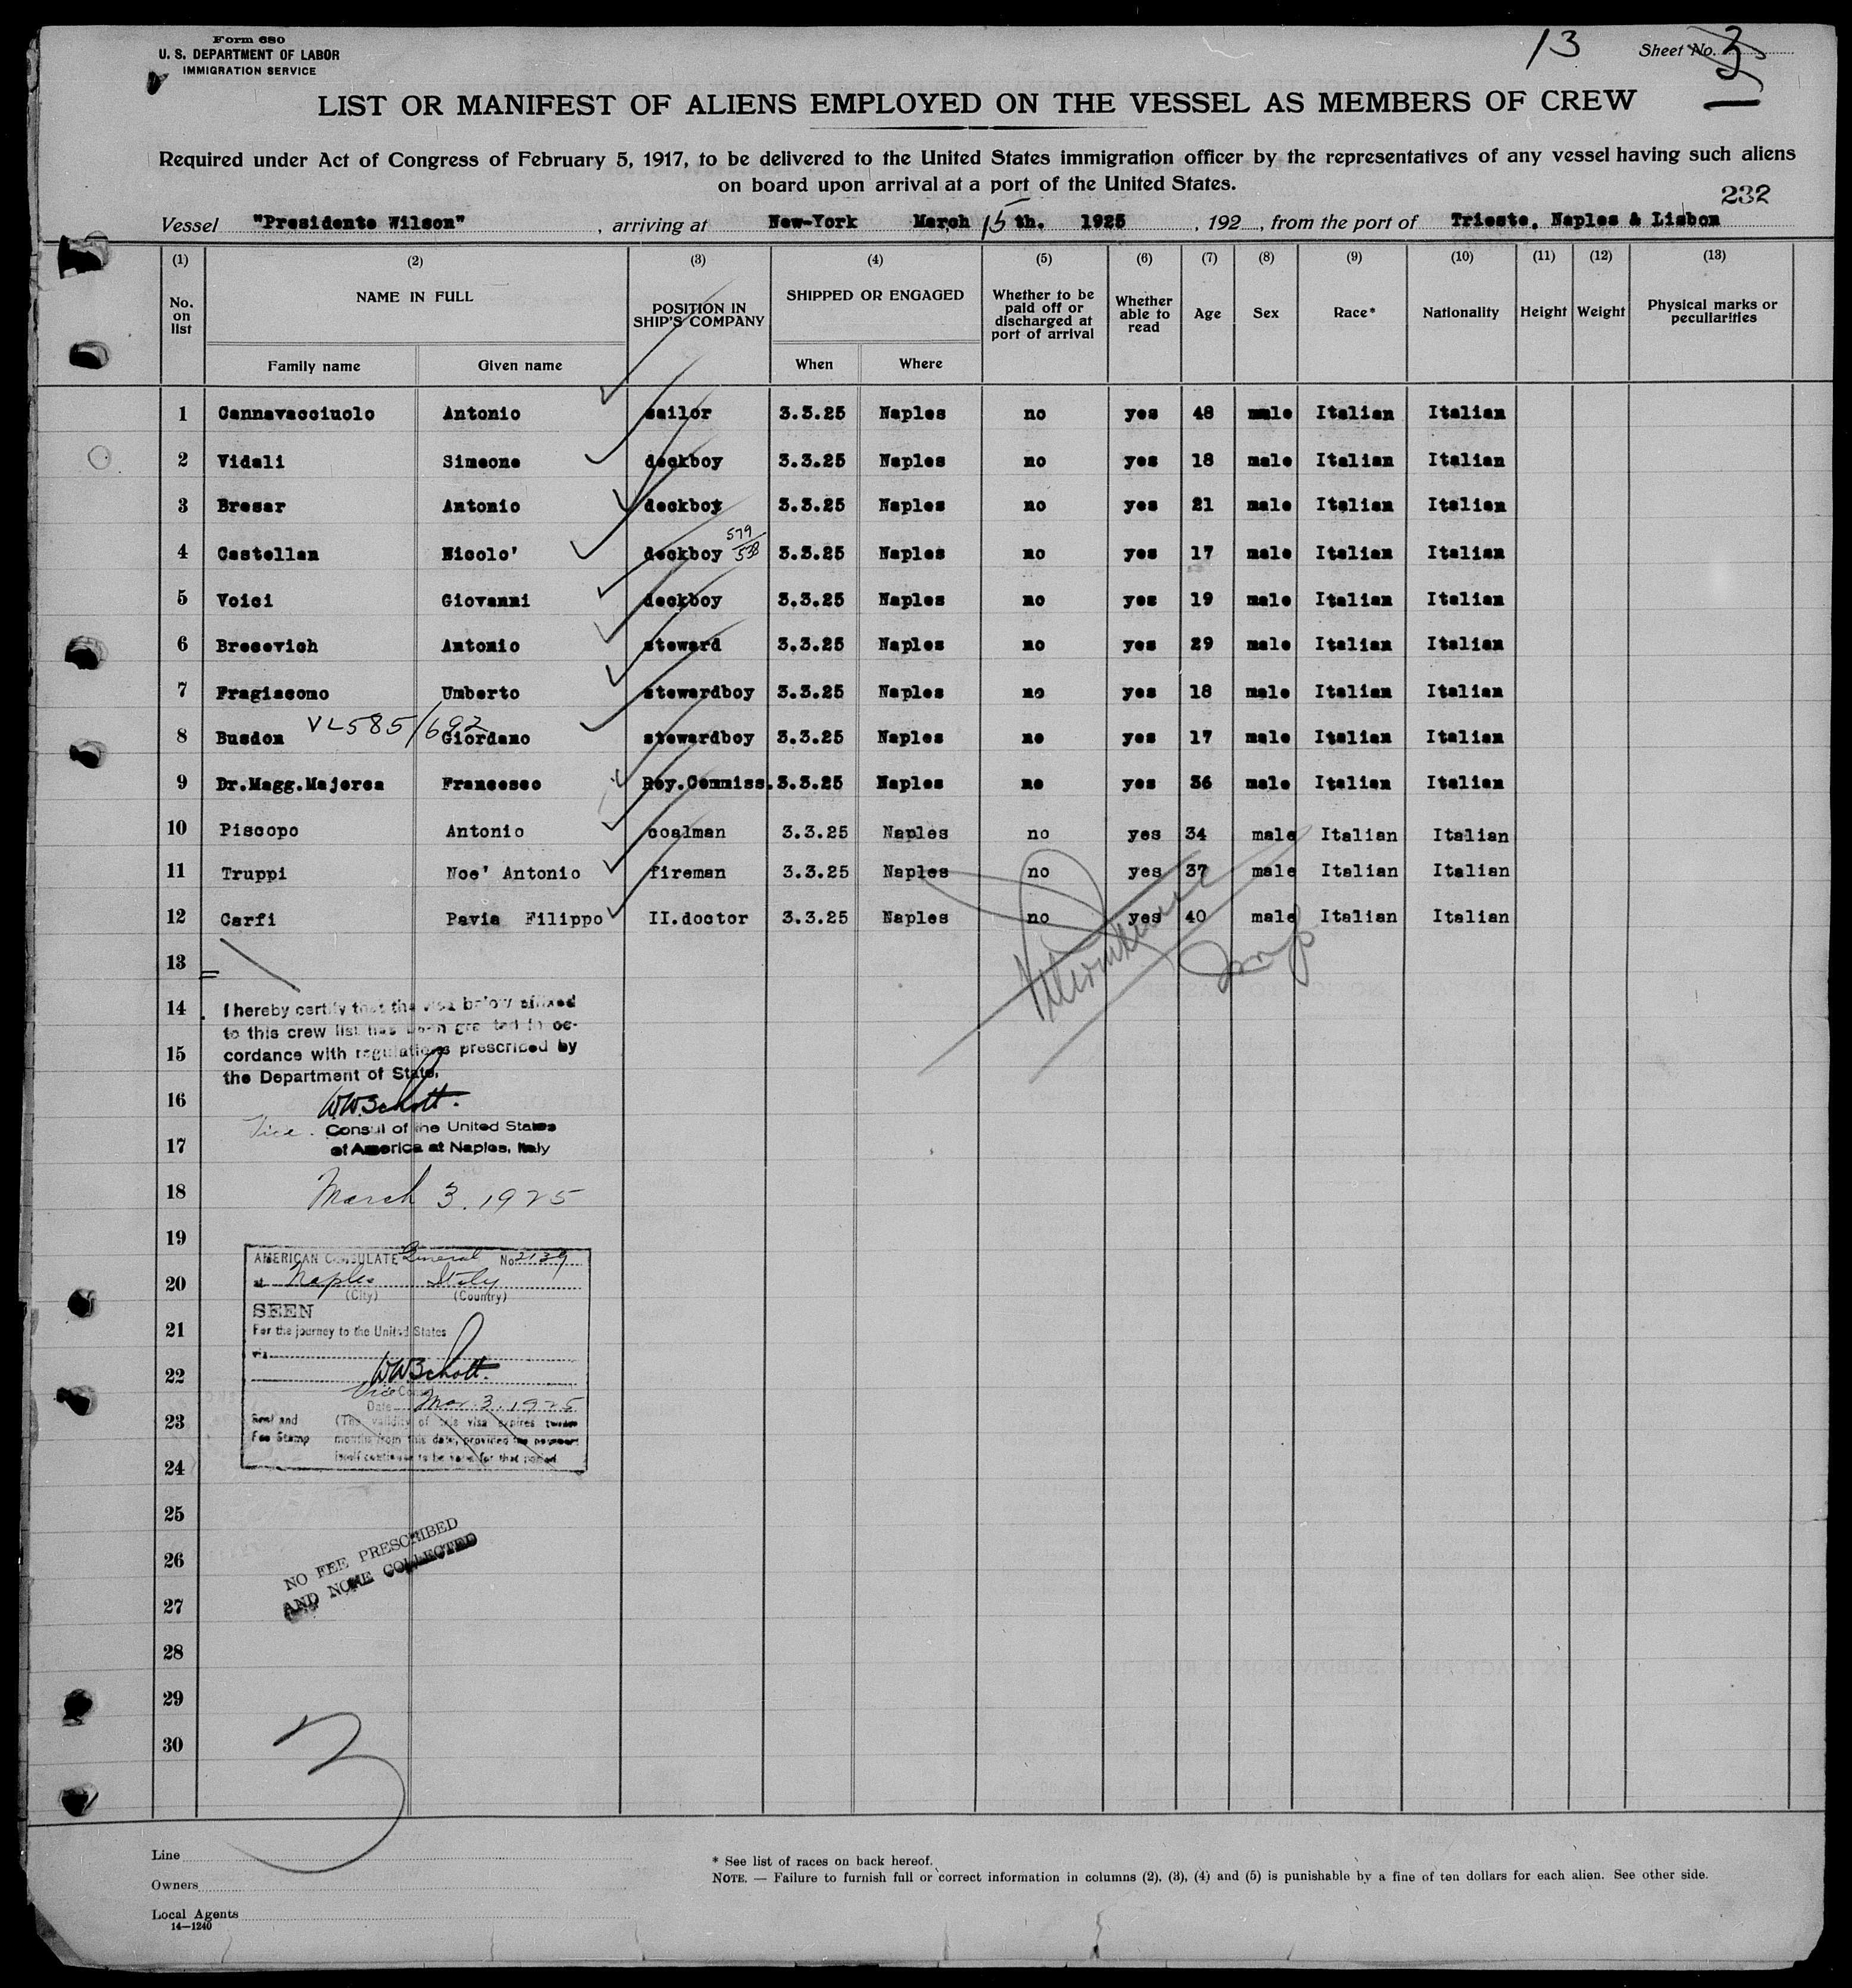 Form 680
U. S. DEPARTMENT OF LABOR
IMMIGRATION SERVICE
13
Sheet No. 3
LIST OR MANIFEST OF ALIENS EMPLOYED ON THE VESSEL AS MEMBERS OF CREW
Required under Act of Congress of February 5, 1917, to be delivered to the United States immigration officer by the representatives of any vessel having such aliens
on board upon arrival at a port of the United States.
232
Vessel "Presidente Wilson", arriving at New-York March 15th. 1925, 192 , from the port of Trieste, Naples & Lisbon
(1) (2) (3) (4) (5) (6) (7) (8) (9) (10) (11) (12) (13)
No. on list NAME IN FULL POSITION IN SHIP'S COMPANY SHIPPED OR ENGAGED Whether to be paid off or discharged at port of arrival Whether able to read Age Sex Race* Nationality Height Weight Physical marks or peculiarities
Family name Given name When Where
1 Cannavacciuolo Antonio sailor 3.3.25 Naples no yes 48 male Italian Italian
2 Vidali Simeone deckboy 3.3.25 Naples no yes 18 male Italian Italian
3 Bresar Antonio deckboy 3.3.25 Naples no yes 21 male Italian Italian
4 Castellan Nicolo' deckboy 579/538 3.3.25 Naples no yes 17 male Italian Italian
5 Voici Giovanni deckboy 3.3.25 Naples no yes 19 male Italian Italian
6 Brecevich Antonio steward 3.3.25 Naples no yes 29 male Italian Italian
7 Fragiacomo Umberto stewardboy 3.3.25 Naples no yes 18 male Italian Italian
VL585/692
8 Busdon Giordano stewardboy 3.3.25 Naples no yes 17 male Italian Italian
9 Dr.Magg.Majorca Francesco Roy.Commiss. 3.3.25 Naples no yes 36 male Italian Italian
10 Piscopo Antonio coalman 3.3.25 Naples no yes 34 male Italian Italian
11 Truppi Noe' Antonio fireman 3.3.25 Naples no yes 37 male Italian Italian
12 Carfi Pavia Filippo II.doctor 3.3.25 Naples no yes 40 male Italian Italian
13
14 I hereby certify that the visa below affixed
to this crew list has been granted in ac-
15 cordance with regulations prescribed by
the Department of State.
16 W.W.Schott.
Vice. Consul of the United States
17 of America at Naples, Italy
18 March 3. 1925
19
AMERICAN CONSULATE General No. 2139
20 at Naples Italy
(City) (Country)
SEEN
21 For the journey to the United States
via
22 W.W.Schott.
Vice Consul
Date Mar. 3. 1925
23 Seal and (The validity of this visa expires twelve
Fee Stamp months from this date, provided the passport
24 itself continues to be valid for that period
25
NO FEE PRESCRIBED
26 AND NONE COLLECTED
27
28
29
30
3
Line
Owners
Local Agents
14—1240
* See list of races on back hereof.
NOTE. — Failure to furnish full or correct information in columns (2), (3), (4) and (5) is punishable by a fine of ten dollars for each alien. See other side.